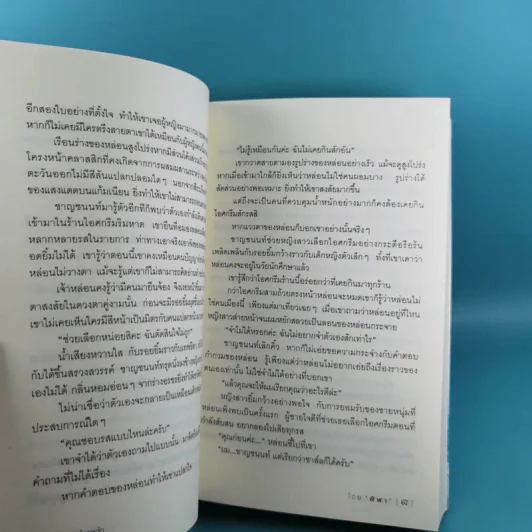 อีกสองใบอย่างที่ตั้งใจ ทำให้เขาเจอผู้หญิง
หากก็ไม่เคยมีใครตรึงสายตาเขาได้เหมือนกับผู้หญิง
เรือนร่างของหล่อนสูงโปร่งหากมีส่วนโค้ง
โครงหน้าคลาสสิกที่คงเกิดจากการผสมผสาน
ตะวันออกไม่มีสีสันแปลกปลอมใดๆ นอกจากสี
ของแสงแดดบนแก้มเนียน ยิ่งทำให้เขาไม่สามารถ
ชาญชนนท์มารู้ตัวอีกทีก็พบว่าตัวเองกำลัง
เข้ามาในร้านไอศกรีมริมหาด เขายืนที่
หลากหลายรสในรายการ ท่าทางเอาจริงเอาจัง
อดยิ้มไม่ได้ เขารู้ว่าตอนนี้เขาคงเหมือนคน
หล่อนไม่วางตา แม้จะรู้แต่เขาก็ไม่สามารถ
เจ้าหล่อนคงรู้ว่ามีคนมายืนจ้อง จึงเงยหน้าขึ้น
ตาสงสัยในดวงตาคู่งามนั้น ก่อนจะมีรอยยิ้ม
เขาไม่เคยเห็นใครมีสีหน้าเป็นมิตรกับคน
"ช่วยเลือกหน่อยสิคะ ฉันตัดสินใจไม่ถูก"
น้ำเสียงหวานใส กับรอยยิ้มราวกับ
กับได้ขึ้นสรวงสวรรค์ ชาญชนนท์ทรุดนั่งลงข้าง
เองไม่ได้ กลิ่นหอมอ่อนๆ จากร่างอรชรยิ่งทำให้
ไม่น่าเชื่อว่าตัวเองจะกลายเป็นเหมือน
ประสบการณ์ใดๆ
"คุณชอบรสแบบไหนล่ะครับ"
เขาจำได้ว่าตัวเองถามไปแบบนั้น
คำถามที่ไม่ได้เรื่อง
หากคำตอบของหล่อนทำให้เขาแปลกใจ
"ไม่รู้เหมือนกันค่ะ ฉันไม่เคยกินสักอัน"
เขากวาดสายตามองรูปร่างของหล่อนอย่างเร็ว แม้จะดูสูงโปร่ง
หากเมื่อเข้ามาใกล้ก็ยิ่งเห็นว่าหล่อนไม่ใช่คนผอมบาง รูปร่างได้
สัดส่วนอย่างพอเหมาะ ยิ่งทำให้เขาสงสัยมากขึ้น
แต่ถึงจะเป็นคนที่ควบคุมน้ำหนักอย่างมากก็คงต้องเคยกิน
ไอศกรีมสักรสสิ
หากแววตาของหล่อนก็บอกเขาอย่างนั้นจริงๆ
ชาญชนนท์ช่วยหญิงสาวเลือกไอศกรีมอย่างกระตือรือร้น
เพลิดเพลินกับรอยยิ้มกว้างราวกับเด็กหญิงตัวเล็กๆ ทั้งที่เขาเดาว่า
หล่อนคงจะอยู่ในวัยนักศึกษาแล้ว
เขารู้สึกว่าไอศกรีมร้านนี้อร่อยกว่าที่เคยกินมาทุกร้าน
กว่าไอศกรีมสามถ้วยตรงหน้าหล่อนจะหมดเขาก็รู้ว่าหล่อนไม่
ใช่คนเมืองนี้ เพียงแต่มาเที่ยวเฉยๆ เมื่อเขาถามว่าหล่อนอยู่ที่ไหน
หญิงสาวส่ายหน้าจนผมหยักสลวยเป็นลอนของหล่อนกระจาย
"จำไม่ได้หรอกค่ะ ฉันไม่อยากจำตัวเองสักเท่าไร"
ชาญชนนท์เลิกคิ้ว หากก็ไม่เอ่ยขอความกระจ่างกับคำตอบ
กำกวมของหล่อน รู้เพียงแต่ว่าหล่อนไม่อยากเอ่ยถึงเรื่องราวของ
ตนเองเท่านั้น ไม่ใช่จำไม่ได้อย่างที่บอกเขา
"แล้วคุณจะให้ผมเรียกคุณว่าอะไรดีล่ะ"
หญิงสาวยิ้มกว้างอย่างพอใจ กับการยอมรับของชายหนุ่มที่
หล่อนเพิ่งพบเป็นครั้งแรก ผู้ชายใจดีที่ช่วยเธอเลือกไอศกรีมตอนที่
กำลังสับสน อยากลองไปเสียทุกรส
"คุณก่อนค่ะ..." หล่อนชี้ไปที่เขา
"เอ่อ...ชาญชนนท์ แต่เรียกว่าชาส์ลก็ได้ครับ"
โดย